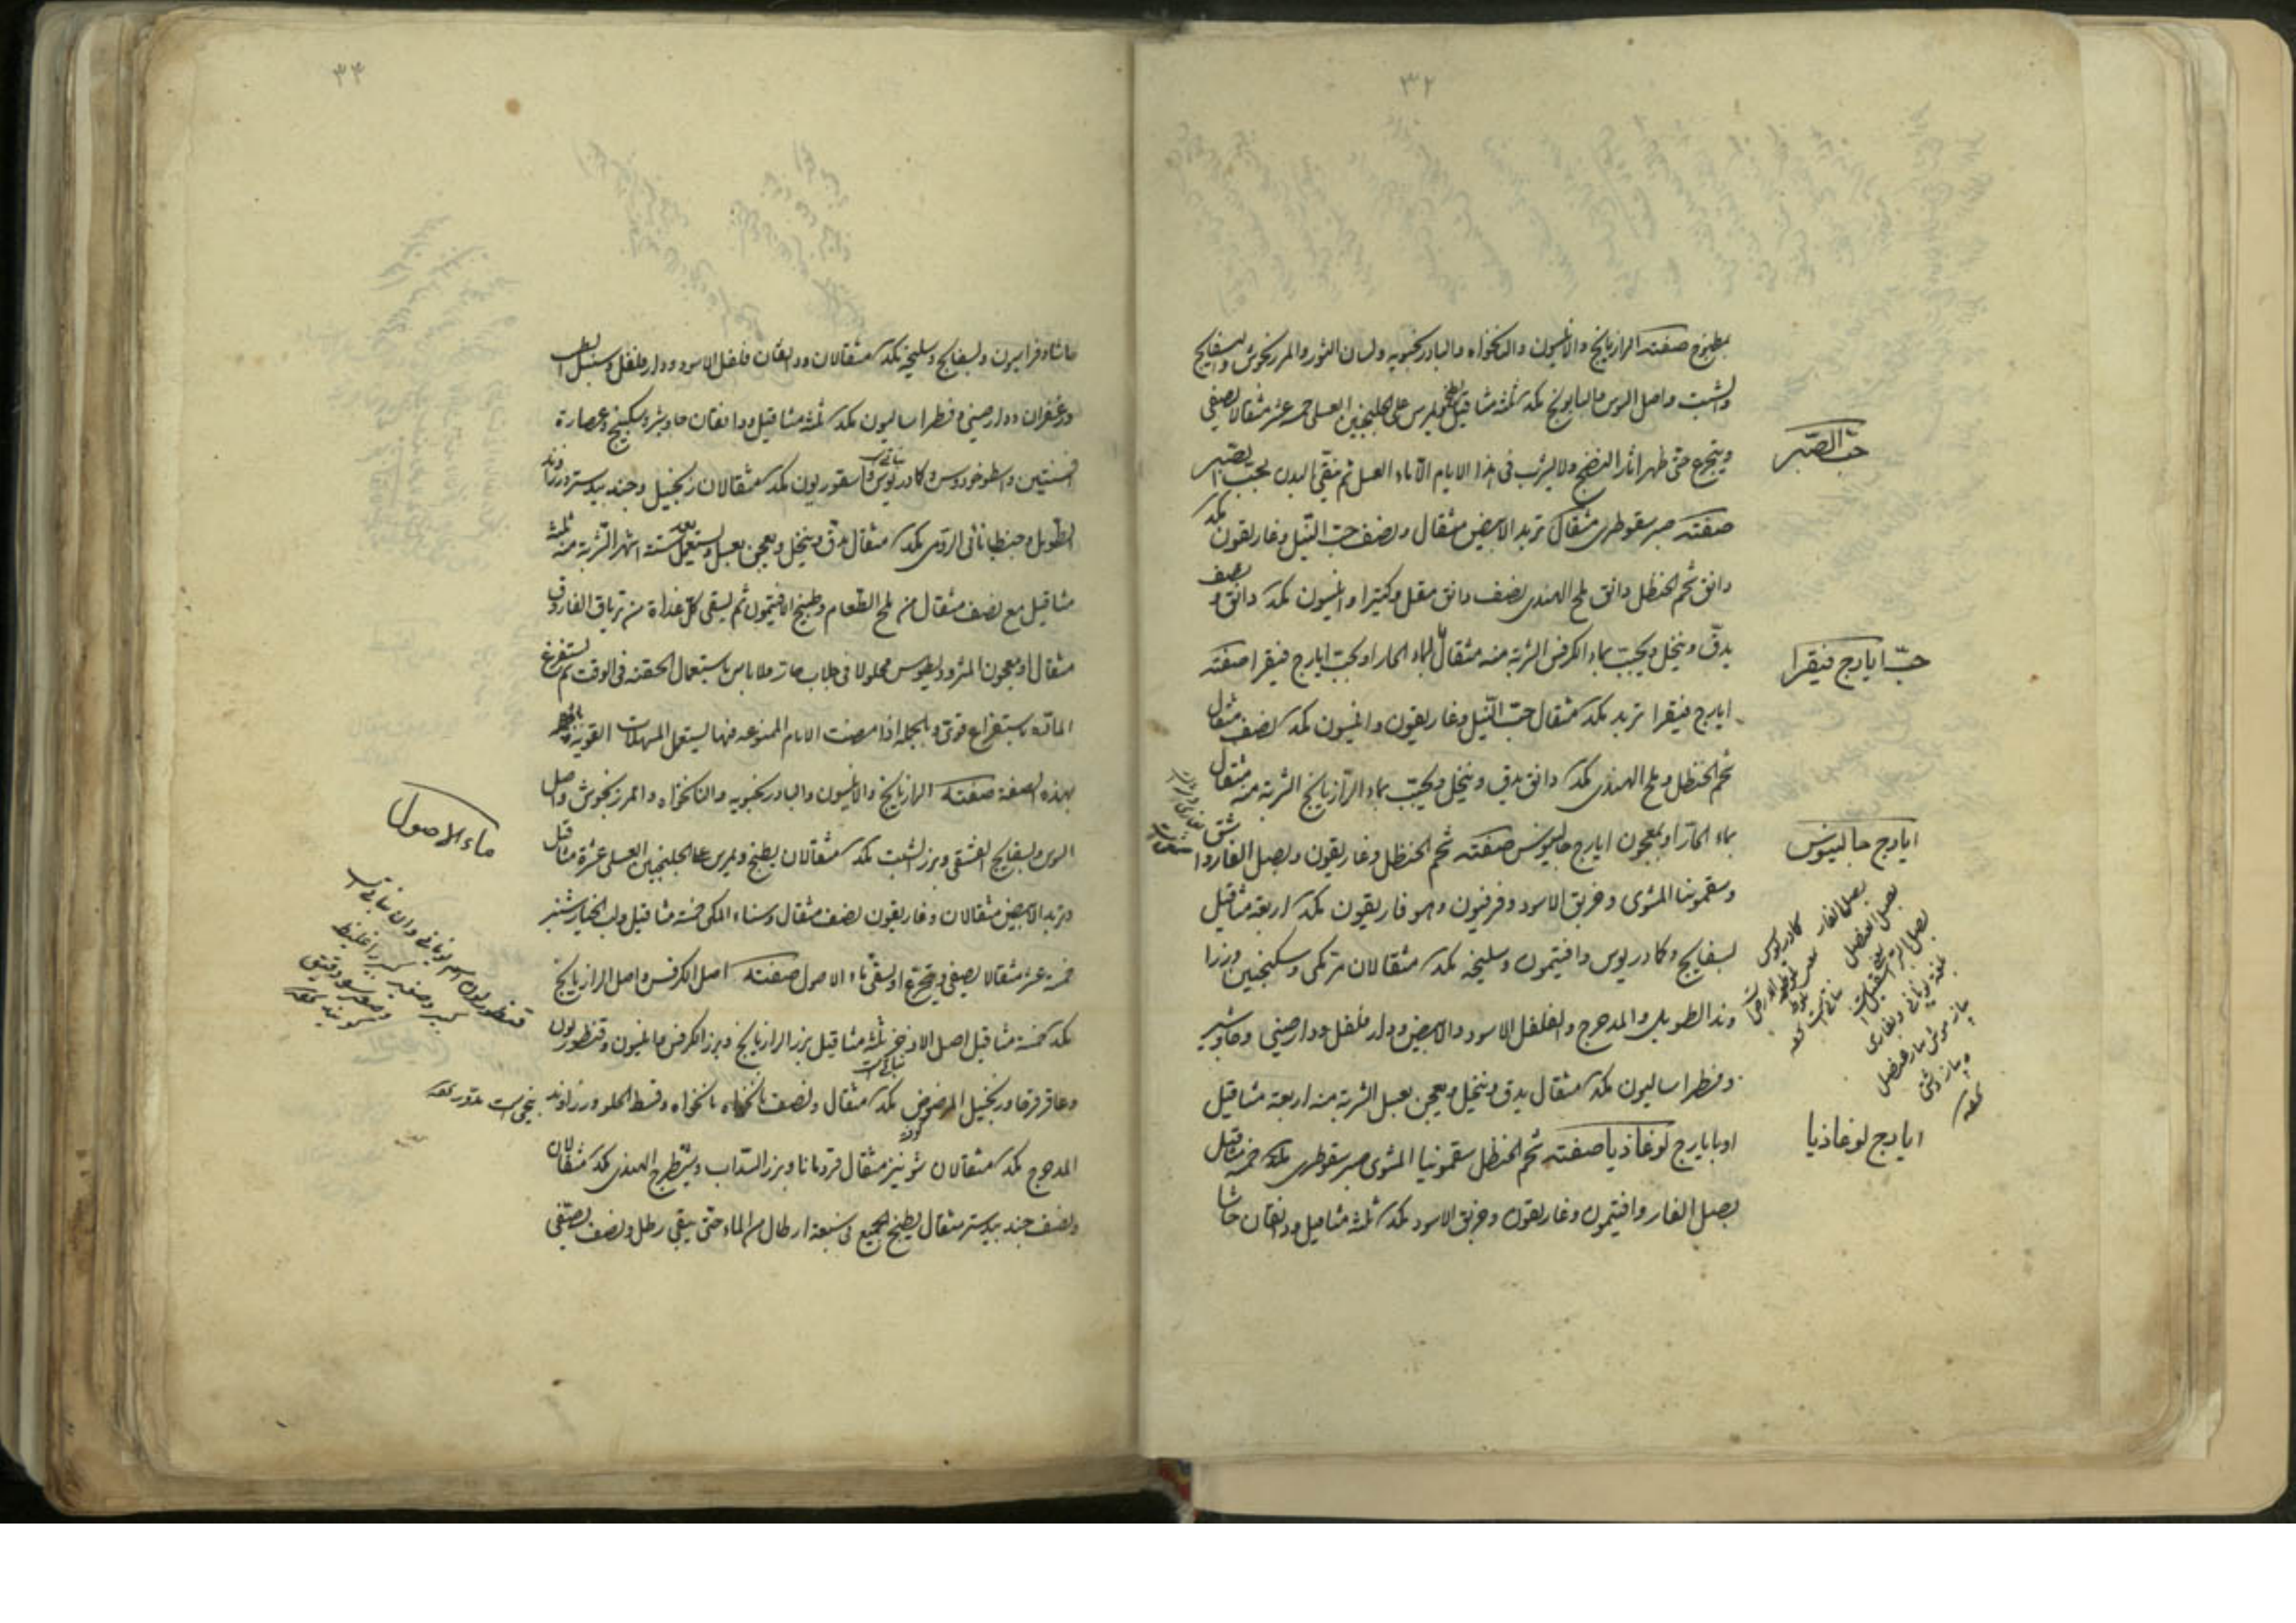 ٣٢
بمطبوخ صفته الرازيانج والانيسون والنانخواه والبادرنجبويه ولسان الثور والمرزنجوش والبسفايج
والشبت واصل السوس والبابونج مكد ثلثة مثاقيل يطبخ ويمرس على الجلنجبين العسلى خمسة عشر مثقالا يصفى
ويتجرع حتى ظهر اثار النضج ولا يشرب فى هذا الايام الا ماء العسل ثم ينقى البدن بحب الصبر
حب الصبر
صفته صبر سقوطرى مثقال تربد الابيض مثقال ونصف حب النيل وغاريقون مكد
دانق شحم الحنظل دانق ملح الهندى نصف دانق مقل وكثيرا وانيسون مكد دانق ونصف
يدق وينخل ويحبب بماء الكرفس الشربة منه مثقال بالماء الحار او بحب ايارج فيقرا صفته
حب ايارج فيقرا
ايارج فيقرا تربد مكد مثقال حب النيل وغاريقون وانيسون مكد نصف مثقال
شحم الحنظل وملح الهندى مكد دانق يدق وينخل ويحبب بماء الرازيانج الشربة منه مثقال
بماء الحار او بمعجون ايارج جالينوس صفته شحم الحنظل وغاريقون وبصل الفار واشق
ايارج جالينوس
وسقمونيا المشوى وخربق الاسود وفرفيون وهوفاريقون مكد اربعة مثاقيل
بسفايج وكمادريوس وافتيمون وسليخه مكد مثقالان مر مكى وسكبينج وزرا
وند الطويل والمدحرج والفلفل الاسود والابيض ودار فلفل ودارصينى وجاوشير
وفطراساليون مكد مثقال يدق وينخل ويعجن بعسل الشربة منه اربعة مثاقيل
او بايارج لوغاذيا صفته شحم الحنظل سقمونيا المشوى صبر سقوطرى مكد خمسة مثاقيل
ايارج لوغاذيا
بصل الفار وافتيمون وغاريقون وخربق الاسود مكد ثلثة مثاقيل ودانقان حاشا
بصل الفار
بصل العنصل
كمادريوس
بلوط الارض
٣٣
حاشا وفراسيون وبسفايج وسليخه مكد مثقالان ودانقان فلفل الاسود ودار فلفل وسنبل الطيب
وزعفران ودارصينى وفطراساليون مكد ثلثة مثاقيل ودانقان جاوشير وسكبينج وعصارة
افسنتين واسطوخودوس وكمادريوس واسقورديون مكد مثقالان زنجبيل وجندبيدستر وزراوند
الطويل وجنطيانا الرومى مكد مثقال يدق وينخل ويعجن بعسل ويستعمل بعد ستة اشهر الشربة منه ثلثة
مثاقيل مع نصف مثقال من ملح الطعام وطبيخ الافتيمون ثم يسقى كل غداة من ترياق الفاروق
مثقال او معجون المثروديطوس محلولا فى جلاب حار ولا باس باستعمال الحقنه فى الوقت ثم يستفرغ
المادة باستفراغ قوى وبالجمله اذا مضت الايام الممنوعه فيها يستعمل المسهلات القوية
بهذه الصفة صفته الرازيانج والانيسون والبادرنجبويه والنانخواه والمرزنجوش واصل
السوس والبسفايج الفستقى وبزر الشبت مكد مثقالان يطبخ ويمرس على الجلنجبين العسلى عشرة مثاقيل
وتربد الابيض مثقالان وغاريقون نصف مثقال وسناء المكى خمسة مثاقيل ولب الخيارشنبر
خمسة عشر مثقالا يصفى ويتجرع او يسقى ماء الاصول صفته اصل الكرفس واصل الرازيانج
ماء الاصول
مكد خمسة مثاقيل اصل الاذخر ثلثة مثاقيل بزر الرازيانج وبزر الكرفس وانيسون وقنطوريون
وعاقرقرحا وزنجبيل المرضوض مكد مثقال ونصف نانخواه وقسط الحلو وزراوند
المدحرج مكد مثقالان شونيز مثقال قردمانا وبزر السداب وشيطرج الهندى مكد مثقالان
ونصف جندبيدستر مثقال يطبخ الجميع فى سبعة ارطال من الماء حتى يبقى رطل ونصف يصفى